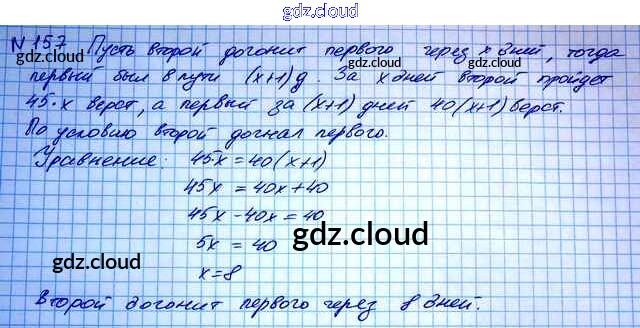 gdz.cloud
№ 157 Пусть второй догонит первого через x дней, тогда
первый был в пути (x+1) д. За x дней второй пройдет
gdz.cloud gdz.cloud
45·x верст, а первый за (x+1) дней 40(x+1) верст.
По условию второй догнал первого.
Уравнение: 45x = 40(x+1)
45x = 40x+40
45x - 40x = 40
gdz.cloud
5x = 40
gdz.cloud
x=8
Второй догонит первого через 8 дней.